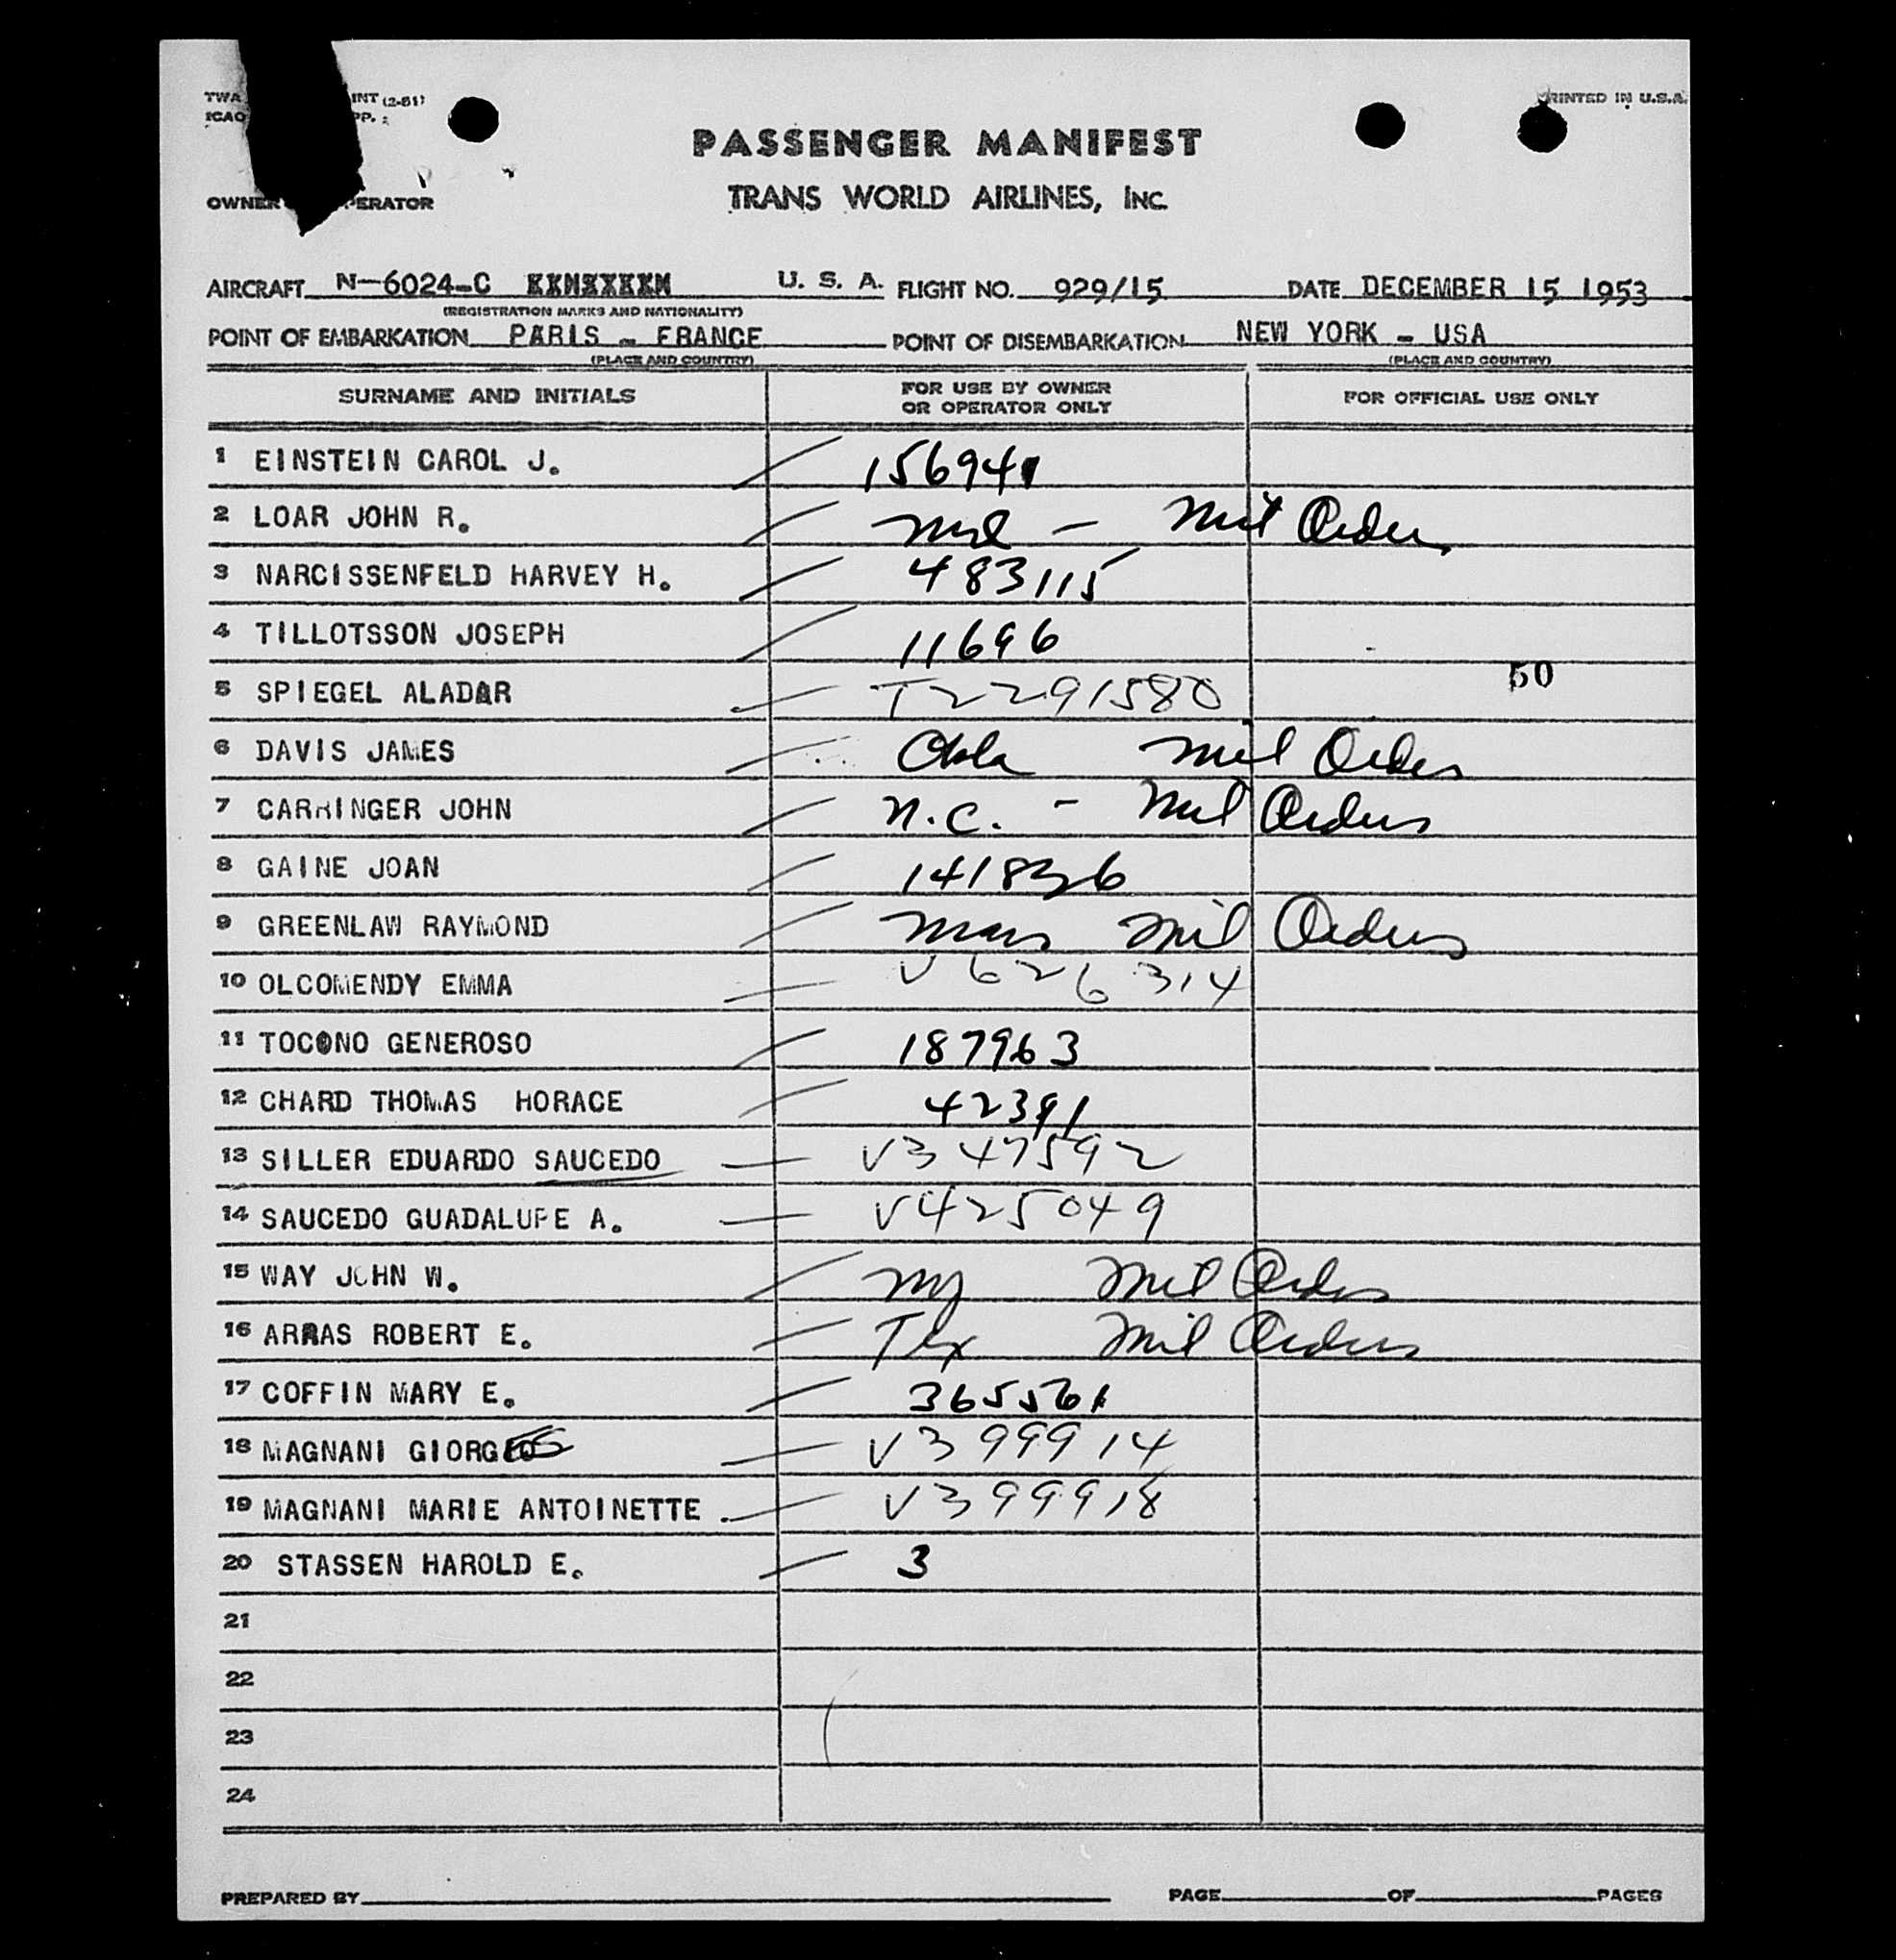 TWA INT (2-51)
ICAO PP. 2
PRINTED IN U.S.A.
PASSENGER MANIFEST
TRANS WORLD AIRLINES, INC
OWNER OPERATOR
AIRCRAFT N-6024-C U. S. A. FLIGHT NO. 929/15 DATE DECEMBER 15 1953
(REGISTRATION MARKS AND NATIONALITY)
POINT OF EMBARKATION PARIS - FRANCE POINT OF DISEMBARKATION NEW YORK - USA
(PLACE AND COUNTRY) (PLACE AND COUNTRY)
SURNAME AND INITIALS FOR USE BY OWNER OR OPERATOR ONLY FOR OFFICIAL USE ONLY
1 EINSTEIN CAROL J. 156941
2 LOAR JOHN R. - Mil Order
3 NARCISSENFELD HARVEY H. 483115
4 TILLOTSSON JOSEPH 11696
50
5 SPIEGEL ALADAR T2291580
6 DAVIS JAMES Okla Mil Orders
7 CARRINGER JOHN N.C. - Mil Orders
8 GAINE JOAN 141836
9 GREENLAW RAYMOND Mass Mil Orders
10 OLCOMENDY EMMA V626314
11 TOCONO GENEROSO 187963
12 CHARD THOMAS HORACE 42391
13 SILLER EDUARDO SAUCEDO V347592
14 SAUCEDO GUADALUPE A. V425049
15 WAY JOHN W. NJ Mil Orders
16 ARRAS ROBERT E. Tex Mil Orders
17 COFFIN MARY E. 365561
18 MAGNANI GIORGIO V399914
19 MAGNANI MARIE ANTOINETTE V399918
20 STASSEN HAROLD E. 3
21
22
23
24
PREPARED BY PAGE OF PAGES